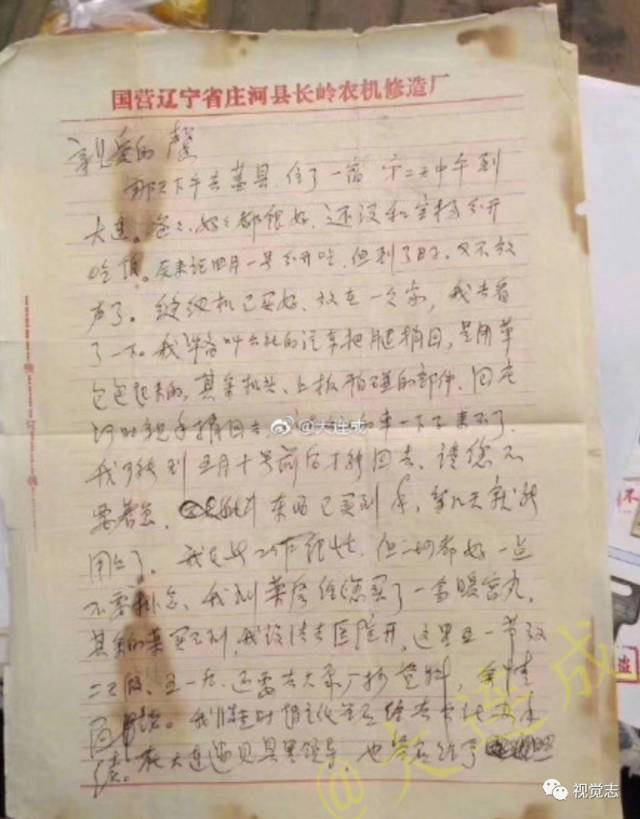 国营辽宁省庄河县长岭农机修造厂
亲爱的馨
那天下午去盖县,住了一宿,第二天中午到
大连。爸爸、妈妈都很好,还没和宝杨分开
吃饭。原来说四月一号分开吃,但到了日子,又不放
声了。缝纫机已买好,放在一文家,我去看
了一下。我准备叫公社的汽车把腿捎回,是用草
包包起来的,其余机头、上板和碰的部件,回庄
河时我手捎回去,一下子拿不了。
我可能到五月十号前后才能回去。请您不
要着急。东西已买到,几天就能
用上了。我在此工作很忙,但一切都好一点
不要挂念。我到药房给您买了一盒暖宫丸,
其余的药买不到,我设法去医院开。这里五一节放
二天假,五一后还要去大原厂抄资料,余情
回
续。在大连遇见县里领导,也
@大连成
@大连成
视觉志